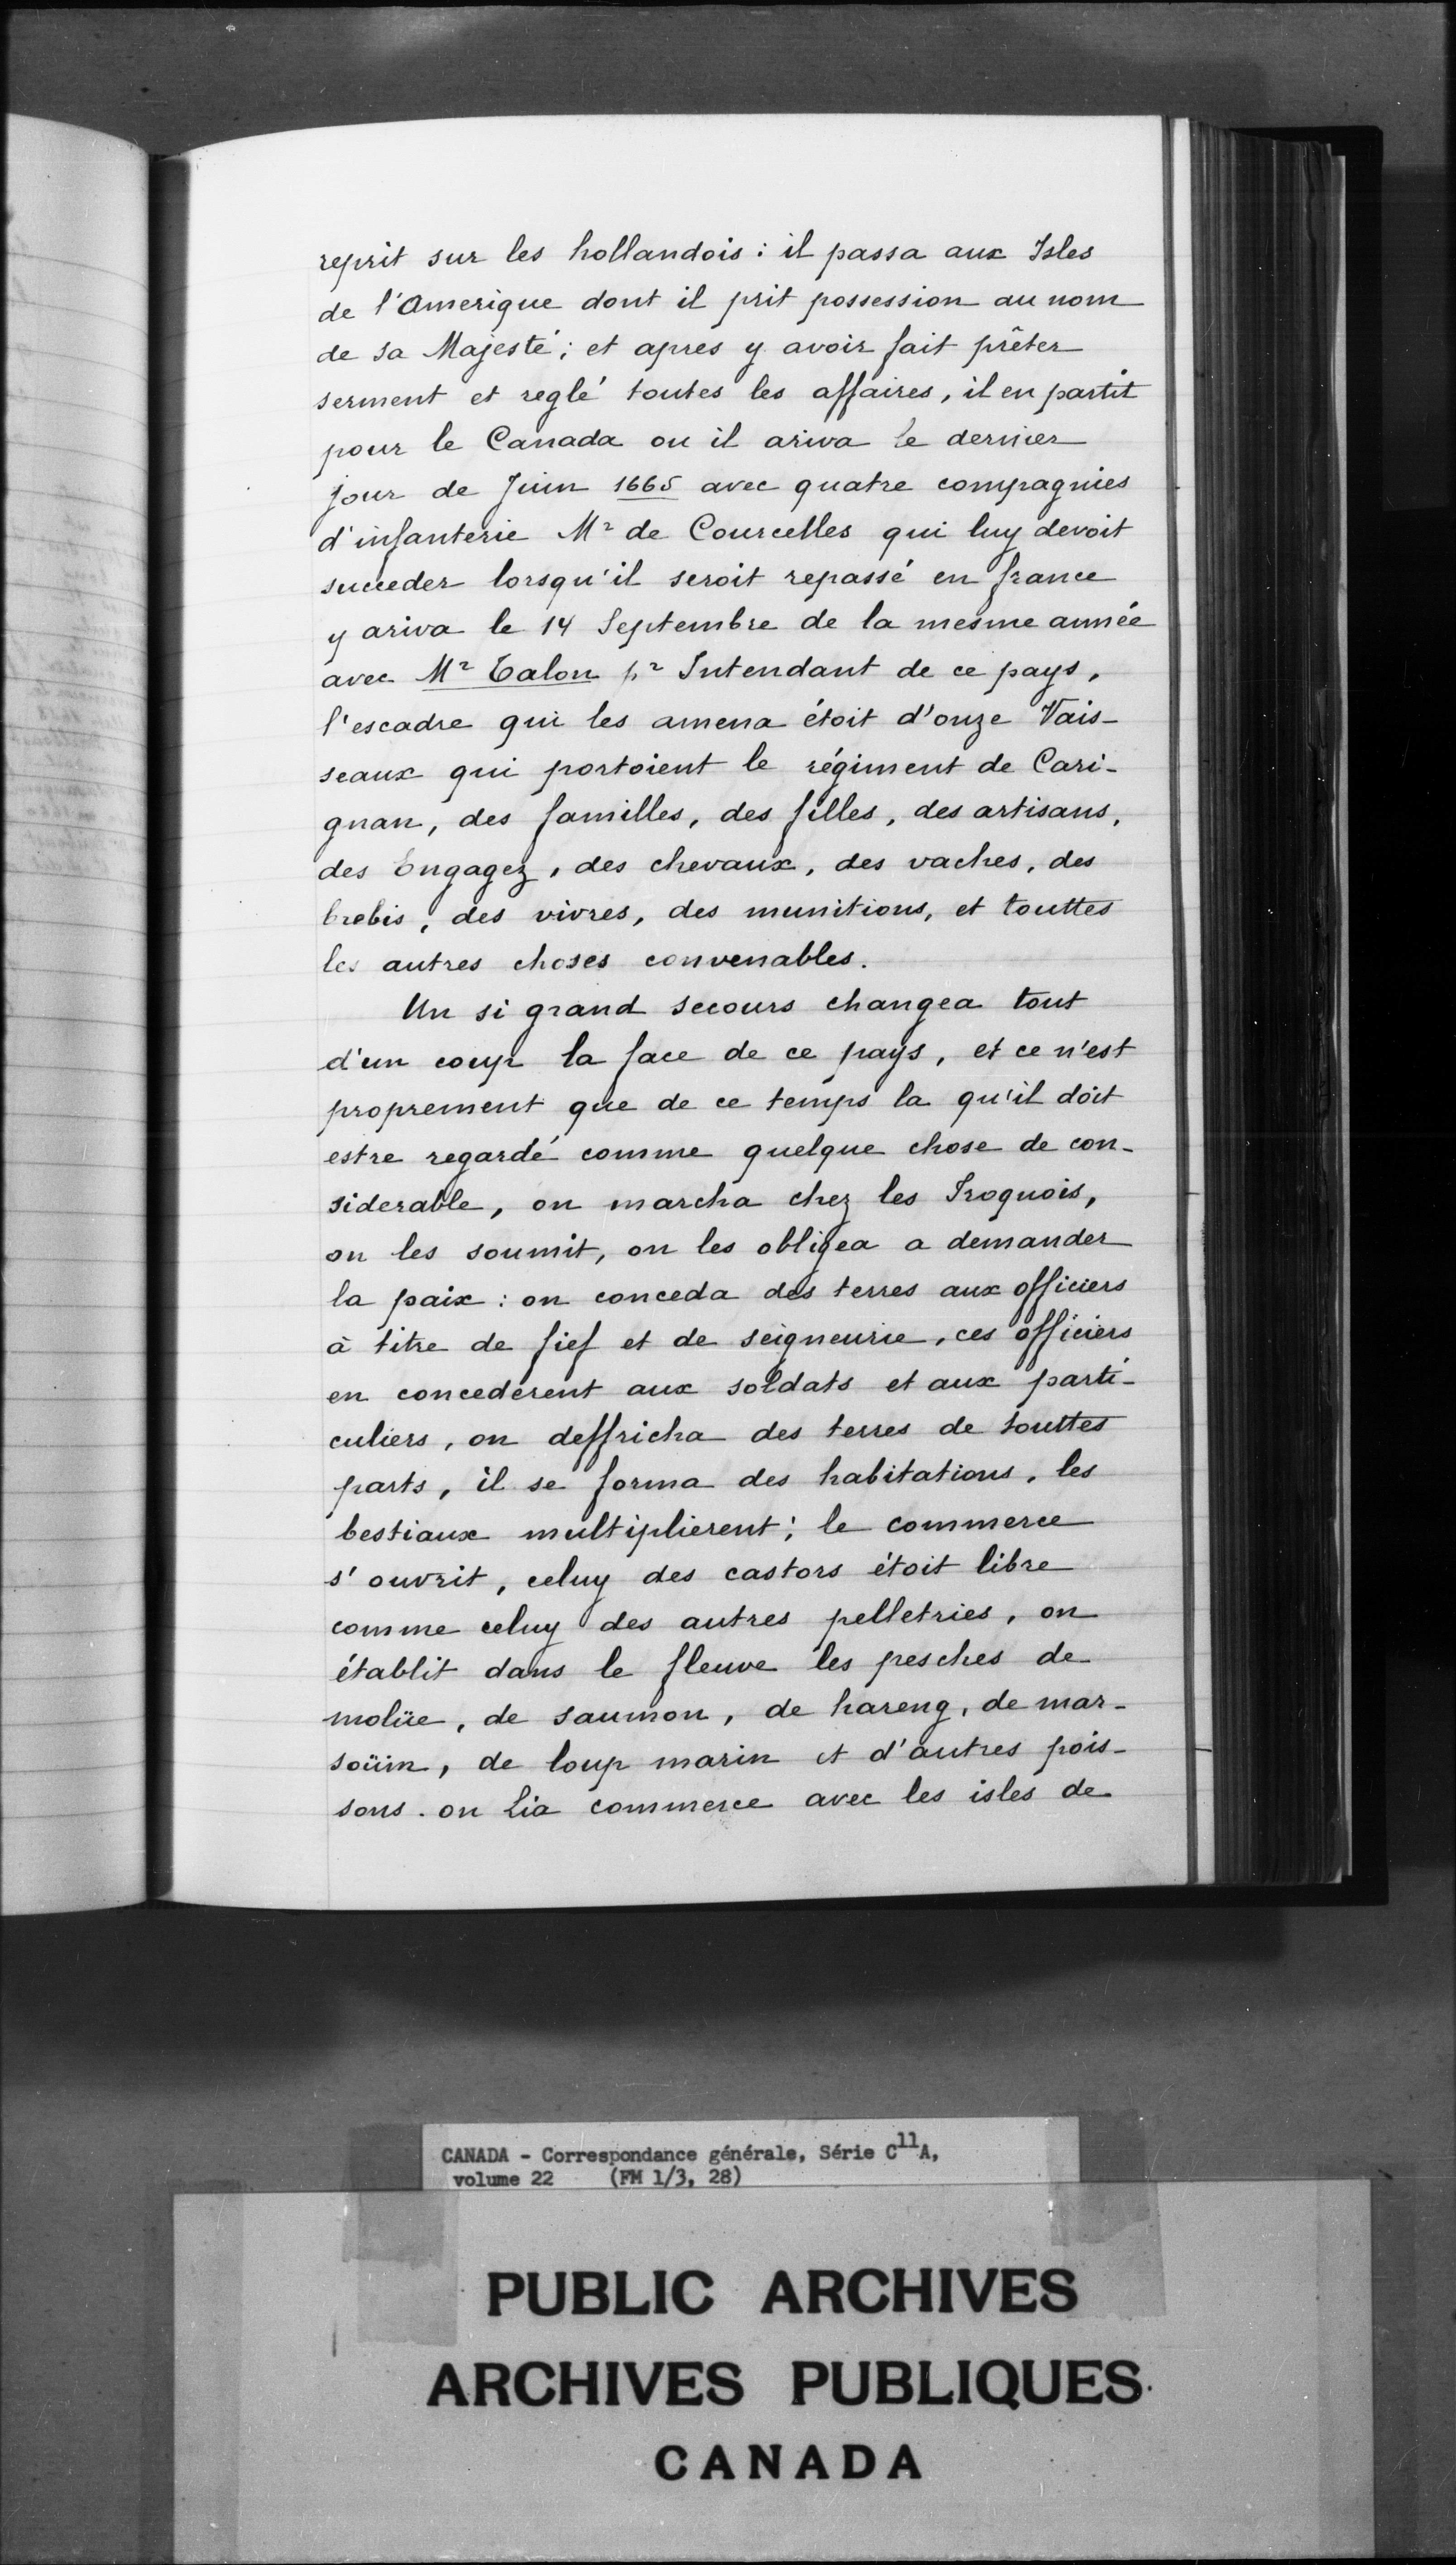 reprit sur les hollandois : il passa aux Isles
de l'Amerique dont il prit possession au nom
de sa Majesté; et apres y avoir fait prêter
serment et reglé toutes les affaires, il en partit
pour le Canada ou il ariva le dernier
jour de Juin 1665 avec quatre compagnies
d'infanterie Mr de Courcelles qui luy devoit
succeder lorsqu'il seroit repassé en france
y ariva le 14 Septembre de la mesme année
avec Mr Talon pr Intendant de ce pays,
l'escadre qui les amena étoit d'onze Vais-
seaux qui portoient le régiment de Cari-
gnan, des familles, des filles, des artisans,
des Engagez, des chevaux, des vaches, des
brebis, des vivres, des munitions, et touttes
les autres choses convenables.
Un si grand secours changea tout
d'un coup la face de ce pays, et ce n'est
proprement que de ce temps la qu'il doit
estre regardé comme quelque chose de con-
siderable, on marcha chez les Iroquois,
on les soumit, on les obligea a demander
la paix : on conceda des terres aux officiers
à titre de fief et de seigneurie, ces officiers
en concederent aux soldats et aux parti-
culiers, on deffricha des terres de touttes
parts, il se forma des habitations, les
bestiaux multiplierent; le commerce
s'ouvrit, celuy des castors étoit libre
comme celuy des autres pelletries, on
établit dans le fleuve les pesches de
molüe, de saumon, de hareng, de mar-
soüin, de loup marin et d'autres pois-
sons. on Lia commerce avec les isles de
CANADA - Correspondance générale, Série C11A,
volume 22 (FM 1/3, 28)
PUBLIC ARCHIVES
ARCHIVES PUBLIQUES
CANADA